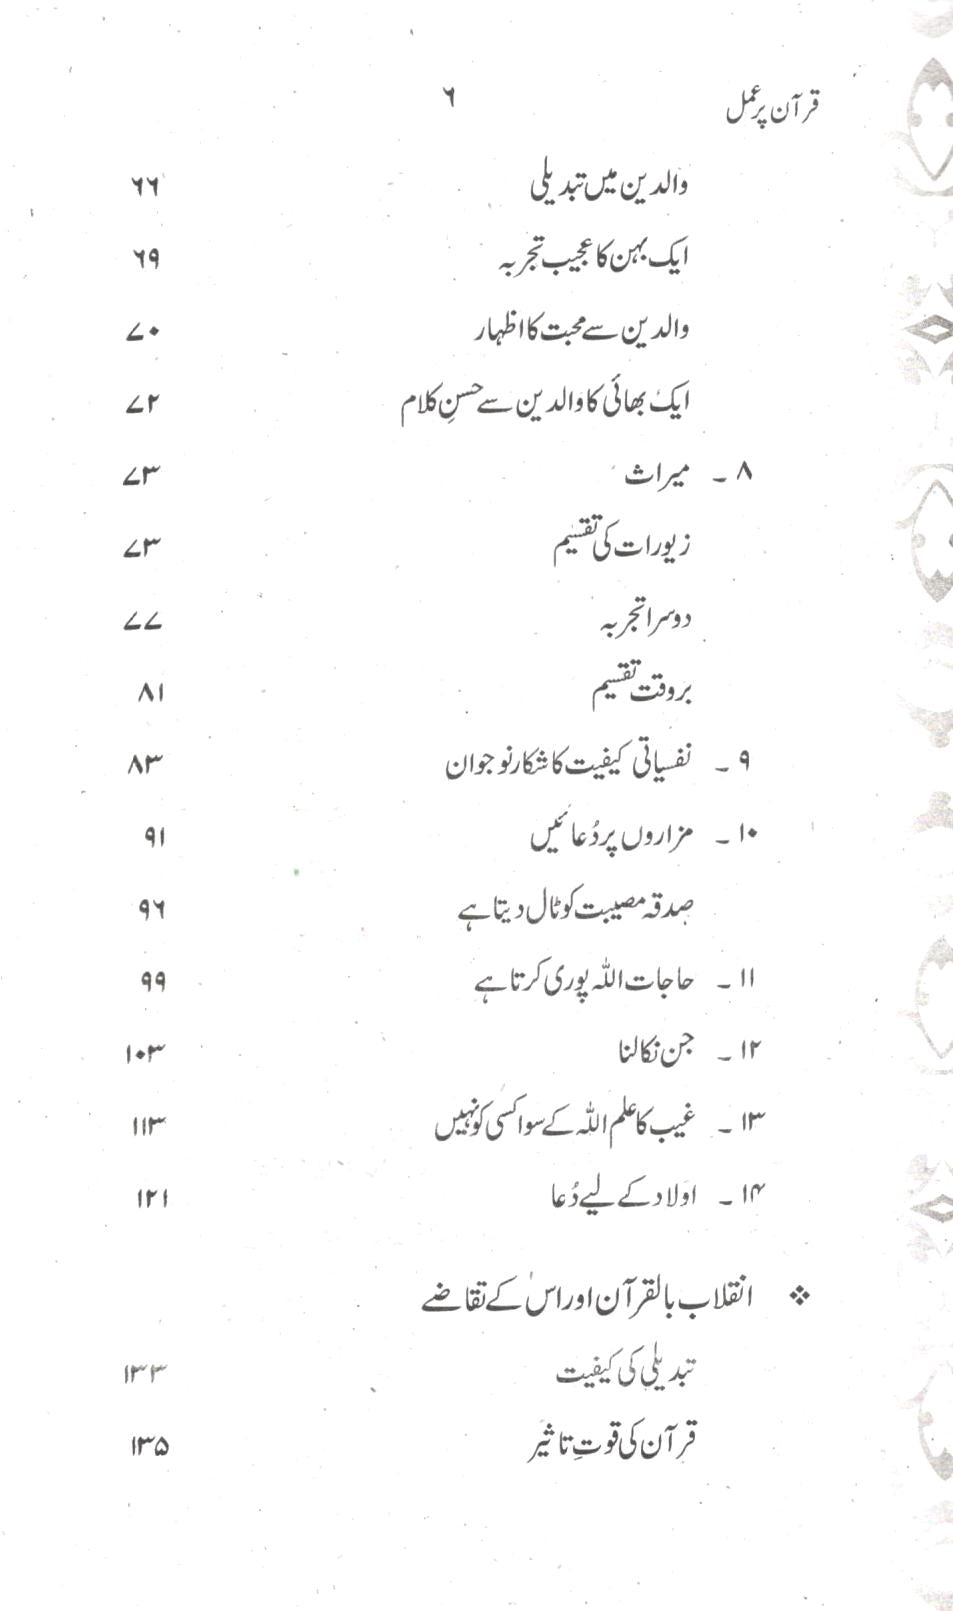 قرآن پر عمل ۶
والدین میں تبدیلی ۶۶
ایک بہن کا عجیب تجربہ ۶۹
والدین سے محبت کا اظہار ۷۰
ایک بھائی کا والدین سے حسنِ کلام ۷۲
۸ ۔ میراث ۷۳
زیورات کی تقسیم ۷۳
دوسرا تجربہ ۷۷
بروقت تقسیم ۸۱
۹ ۔ نفسیاتی کیفیت کا شکار نوجوان ۸۳
۱۰ ۔ مزاروں پر دُعائیں ۹۱
صدقہ مصیبت کو ٹال دیتا ہے ۹۶
۱۱ ۔ حاجات اللہ پوری کرتا ہے ۹۹
۱۲ ۔ جن نکالنا ۱۰۳
۱۳ ۔ غیب کا علم اللہ کے سوا کسی کو نہیں ۱۱۳
۱۴ ۔ اولاد کے لیے دُعا ۱۲۱
❖ انقلاب بالقرآن اور اس کے تقاضے
تبدیلی کی کیفیت ۱۳۳
قرآن کی قوتِ تاثیر ۱۳۵